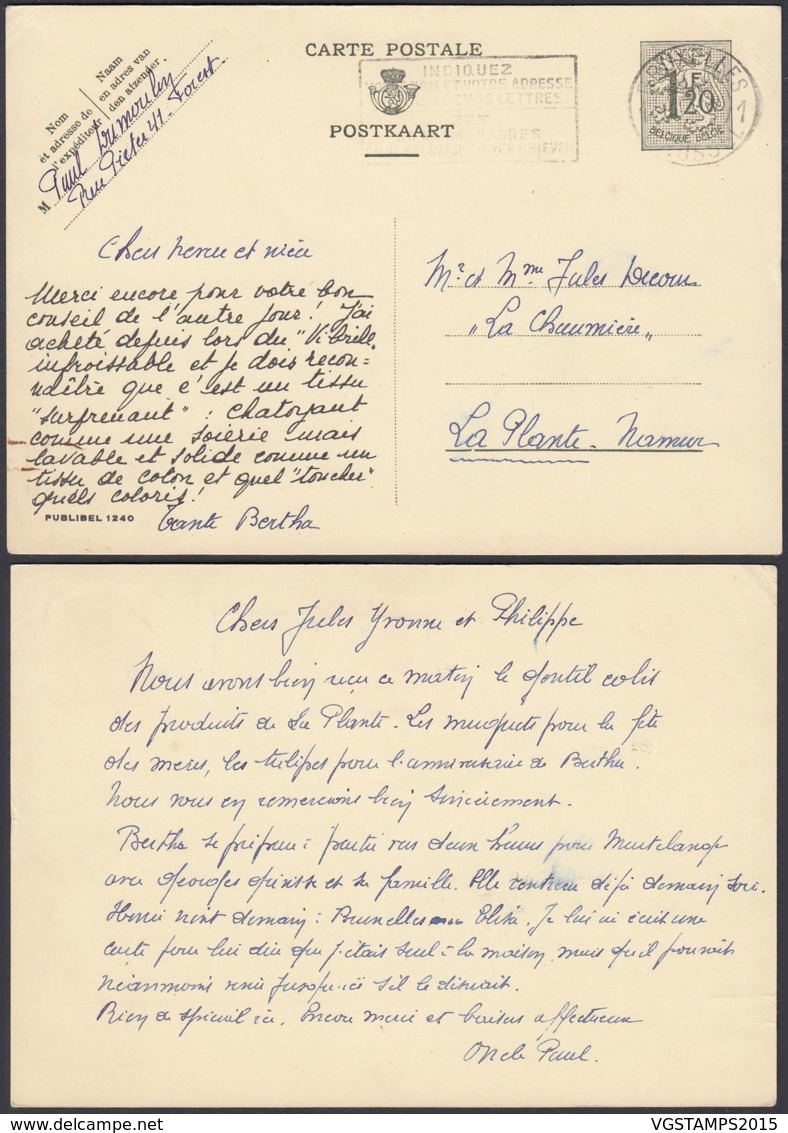 CARTE POSTALE
POSTKAART
Nom
et adresse de
l'expéditeur
Naam
en adres van
den afzender
M Paul Dumoulin
Rue Pieter 41 - Forest
INDIQUEZ
VOTRE ADRESSE
LETTRES
BRUXELLES
1
1F20
BELGIQUE-BELGIË
Chers neveu et nièce
Merci encore pour votre bon
conseil de l'autre jour! J'ai
acheté depuis lors du "Vibrille
infroissable et je dois recon=
naître que c'est un tissu
"surprenant": Chatoyant
comme une soierie mais
lavable et solide comme un
tissu de coton et quel "toucher"
quels coloris!
Tante Bertha
PUBLIBEL 1240
Mr et Mme Jules Decoux
"La Chaumière"
La Plante - Namur
Chers Jules Yvonne et Philippe
Nous avons bien reçu ce matin le gentil colis
des produits de La Plante. Les muguets pour la fête
des mères, les tulipes pour l'anniversaire de Bertha.
Nous vous en remercions bien sincèrement.
Bertha se prépare à partir vers deux heures pour Martelange
avec Georges et sa famille. Elle rentrera déjà demain soir.
Henri vient demain à Bruxelles avec Elise. Je lui ai écrit une
carte pour lui dire que j'étais seul à la maison, mais qu'il pouvait
néanmoins venir jusqu'ici s'il le désirait.
Rien de spécial ici. Encore merci et baisers affectueux
Oncle Paul.
VGSTAMPS2015